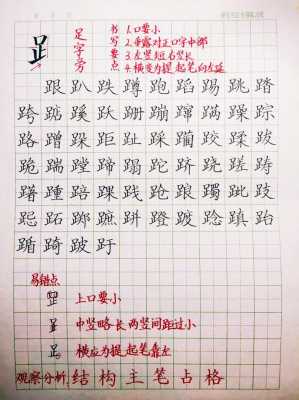 足字旁
书写要点
1.口要小
2.垂露对正口字中部
3.左竖短右竖长
4.横变为提起笔向左延
跟趴跌蹲跑蹈踢跳踏
跨蹠蹊跃跚蹦蹿蹒躁踪
路蹭跺距趾踩躏跤蹂跋
跪踹蹚蹄蹋跎跻跷蹉踌
躇踵踣踝践跄踉躅跐跂
跽跖踯蹠跰蹬踱跄蹎跆
蹰踦跛趶
易错点
上口要小
中竖略长两竖间距过小
横应为提起笔靠左
观察分析 结构主笔占格